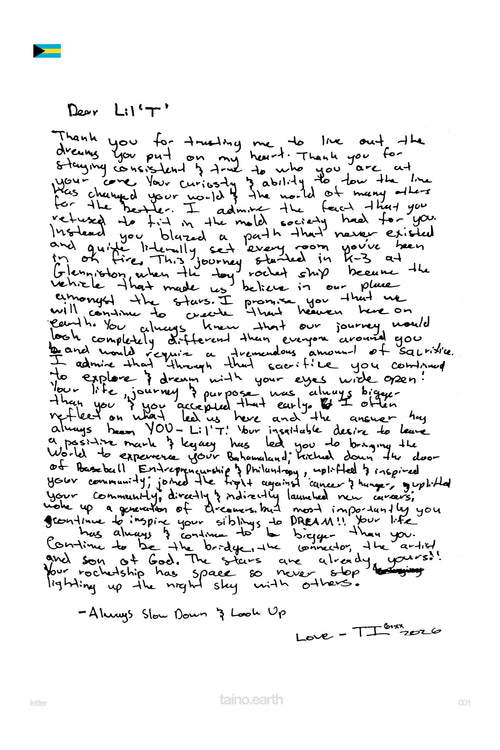 Dear Lil 'T'
Thank you for trusting me to live out the
dreams you put on my heart. Thank you for
staying consistent & true to who you are at
your core. Your curiosity & ability to tow the line
has changed your world & the world of many others
for the better. I admire the fact that you
refused to fit in the mold society had for you.
Instead you blazed a path that never existed
and quite literally set every room you've been
in on fire. This journey started in K-3 at
Glenniston, when the toy rocket ship became the
vehicle that made us believe in our place
amongst the stars. I promise you that we
will continue to create that heaven here on
earth. You always knew that our journey would
look completely different than everyone around you
and would require a tremendous amount of sacrifice.
I admire that through that sacrifice you continued
to explore & dream with your eyes wide open!
Your life, journey & purpose was always bigger
than you & you accepted that early. I often
reflect on what led us here and the answer has
always been YOU - Lil 'T'! Your insaitable desire to leave
a positive mark & legacy has led you to bringing the
World to experience your Bahamaland; kicked down the door
of Baseball Entrepreneurship & Philantrony, uplifted & inspired
your community; joined the fight against cancer & hunger, uplifted
your community, directly & indirectly launched new careers;
woke up a generation of dreamers. but most importantly you
continue to inspire your siblings to DREAM!! Your life
has always & continue to be bigger than you.
Continue to be the bridge, the connector, the artist
and son of God. The stars are already yours!!
Your rocketship has space so never stop
lighting up the night sky with others.
- Always Slow Down & Look Up
Love - TI 2026
letter
taino.earth
001